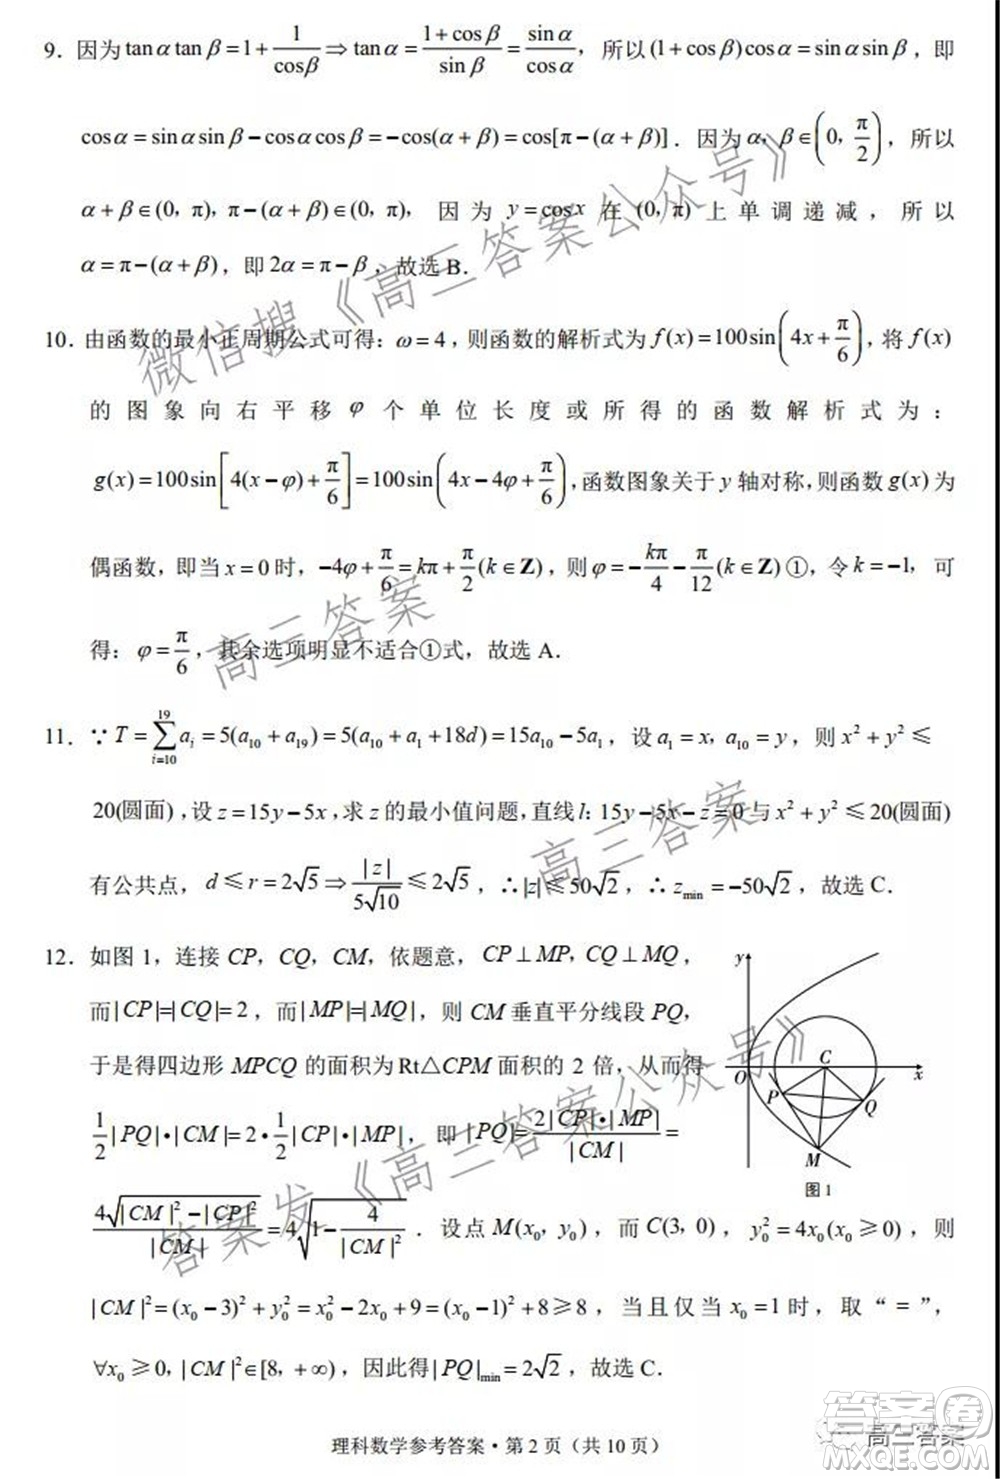 9．因为 tanα tanβ = 1 + 1/cosβ ⇒ tanα = (1+cosβ)/sinβ = sinα/cosα，所以 (1+cosβ)cosα = sinα sinβ，即
cosα = sinα sinβ − cosα cosβ = −cos(α+β) = cos[π−(α+β)]．因为 α，β∈(0，π/2)，所以
α+β∈(0，π)，π−(α+β)∈(0，π)，因为 y=cosx 在 (0，π) 上单调递减，所以
α=π−(α+β)，即 2α=π−β，故选 B．
10．由函数的最小正周期公式可得：ω=4，则函数的解析式为 f(x)=100sin(4x+π/6)，将 f(x)
的图象向右平移 φ 个单位长度或所得的函数解析式为：
g(x)=100sin[4(x−φ)+π/6]=100sin(4x−4φ+π/6)，函数图象关于 y 轴对称，则函数 g(x) 为
偶函数，即当 x=0 时，−4φ+π/6=kπ+π/2(k∈Z)，则 φ=−kπ/4−π/12(k∈Z)①，令 k=−1，可
得：φ=π/6，其余选项明显不适合①式，故选 A．
11．∵T=∑_{i=10}^{19} a_i=5(a₁₀+a₁₉)=5(a₁₀+a₁+18d)=15a₁₀−5a₁，设 a₁=x，a₁₀=y，则 x²+y²≤
20(圆面)，设 z=15y−5x，求 z 的最小值问题，直线 l：15y−5x−z=0 与 x²+y²≤20(圆面)
有公共点，d≤r=2√5⇒|z|/5√10≤2√5，∴|z|≤50√2，∴z_min=−50√2，故选 C．
12．如图 1，连接 CP，CQ，CM，依题意，CP⊥MP，CQ⊥MQ，
而|CP|=|CQ|=2，而|MP|=|MQ|，则 CM 垂直平分线段 PQ，
于是得四边形 MPCQ 的面积为 Rt△CPM 面积的 2 倍，从而得
1/2|PQ|•|CM|=2•1/2|CP|•|MP|，即|PQ|=2|CP|•|MP|/|CM|=
4√(|CM|²−|CP|²)/|CM|=4√(1−4/|CM|²)．设点 M(x₀，y₀)，而 C(3，0)，y₀²=4x₀(x₀≥0)，则
|CM|²=(x₀−3)²+y₀²=x₀²−2x₀+9=(x₀−1)²+8≥8，当且仅当 x₀=1 时，取“=”，
∀x₀≥0，|CM|²∈[8，+∞)，因此得|PQ|_min=2√2，故选 C．
y
O
C
x
P
Q
M
图 1
理科数学参考答案·第 2 页（共 10 页）
微信搜《高三答案公众号》
高三答案
高三答案
答案发《高三答案公众号》
答案圈
高三答案